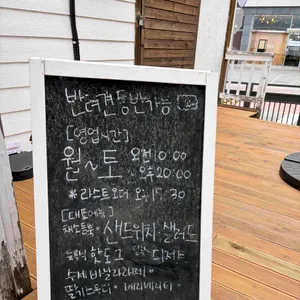 반려견 동반 가능
[영업시간]
월~토 오전 10:00
~ 오후 20:00
* 라스트오더 오후 19:30
[대표메뉴]
채소듬뿍 · 샌드위치 · 샐러드
핫도그 디저트
수제 바닐라라떼 ·
딸기스무디